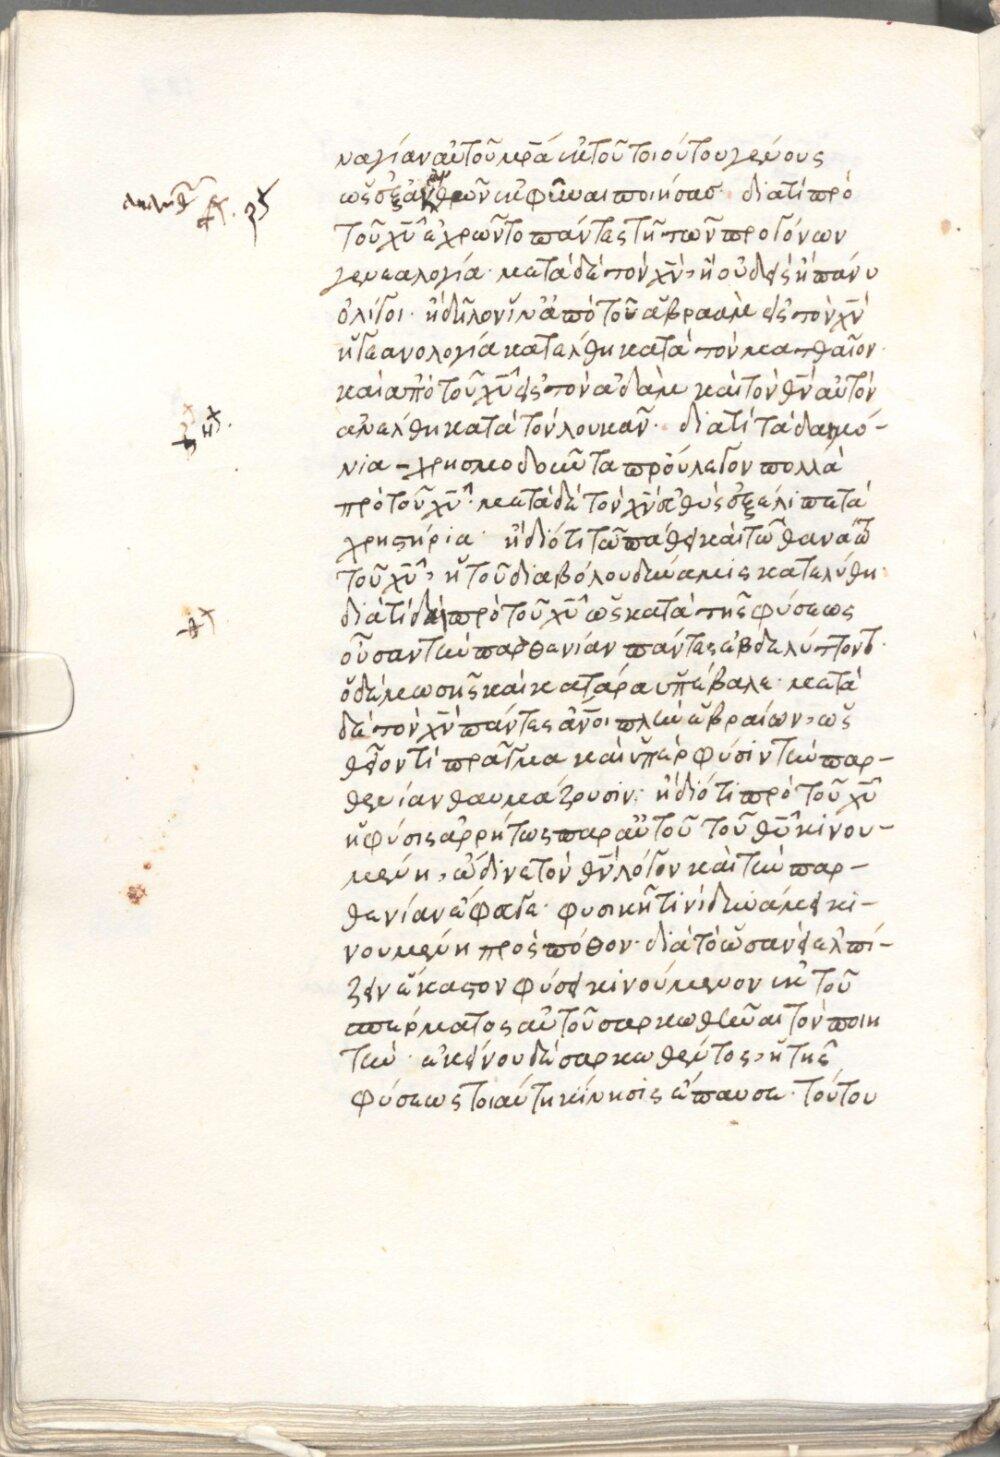 ναγίαν αὐτοῦ μρ̅ά ἐκ τοῦ τοιούτου γένους
ὡς ἐξ ἐκφῦναι ποιήσας· διατί πρὸ
τοῦ χυ̅ ἐχρῶντο πάντες τῇ τῶν προγόνων
γενεαλογία· μετὰ δὲ τὸν χν̅, ἢ οὐδεὶς ἢ πάνυ
ὀλίγοι· ἢ δῆλον ἵν' ἀπὸ τοῦ ἀβραὰμ εἰς τὸν χν̅
ἡ γεανολογία κατελθη κατὰ τὸν ματθαῖον·
καὶ ἀπὸ τοῦ χυ̅ εἰς τὸν ἀδὰμ καὶ τὸν θν̅ αὐτὸν
ἀνελθη κατὰ τὸν λουκᾶν· διατί τὰ δαιμό-
νια χρησμοδοῦντα προὔλεγον πολλὰ
πρὸ τοῦ χυ̅· μετὰ δὲ τὸν χν̅ εὐθὺς ἐξέλιπε τὰ
χρηστήρια· ἢ διότι τῶ πάθει καὶ τῶ θανάτω
τοῦ χυ̅, ἡ τοῦ διαβόλου δύναμις κατελύθη·
διατί δὲ πρὸ τοῦ χυ̅ ὡς κατὰ τῆς φύσεως
οὖσαν τὴν παρθενίαν πάντες ἐβδελύττοντο·
ὁ δὲ μωσῆς καὶ κατάρα ὑπέβαλε· μετὰ
δὲ τὸν χν̅ πάντες ἄνοι πλὴν ἑβραίων, ὡς
θεῖόν τι πρᾶγμα καὶ ὑπὲρ φύσιν τὴν παρ-
θενίαν θαυμάζουσιν· ἢ διότι πρὸ τοῦ χυ̅
ἡ φύσις ἀρρήτως παρ' αὐτοῦ τοῦ θυ̅ κινου-
μένη, ὤδινε τὸν θν̅ λόγον καὶ τὴν παρ-
θενίαν ἔφυγε· φυσικῇ τινὶ δυνάμει κι-
νουμένη πρὸς πόθον· διὰ τὸ ὡσὰν ἐλπί-
ζειν ἕκαστον φύσει κινούμενον ἐκ τοῦ
σπέρματος αὐτοῦ σαρκωθῆναι τὸν ποιη
τὴν· ἐκείνου δὲ σαρκωθέντος, ἡ τῆς
φύσεως τοιαύτη κίνησις ἔπαυσε· τούτου